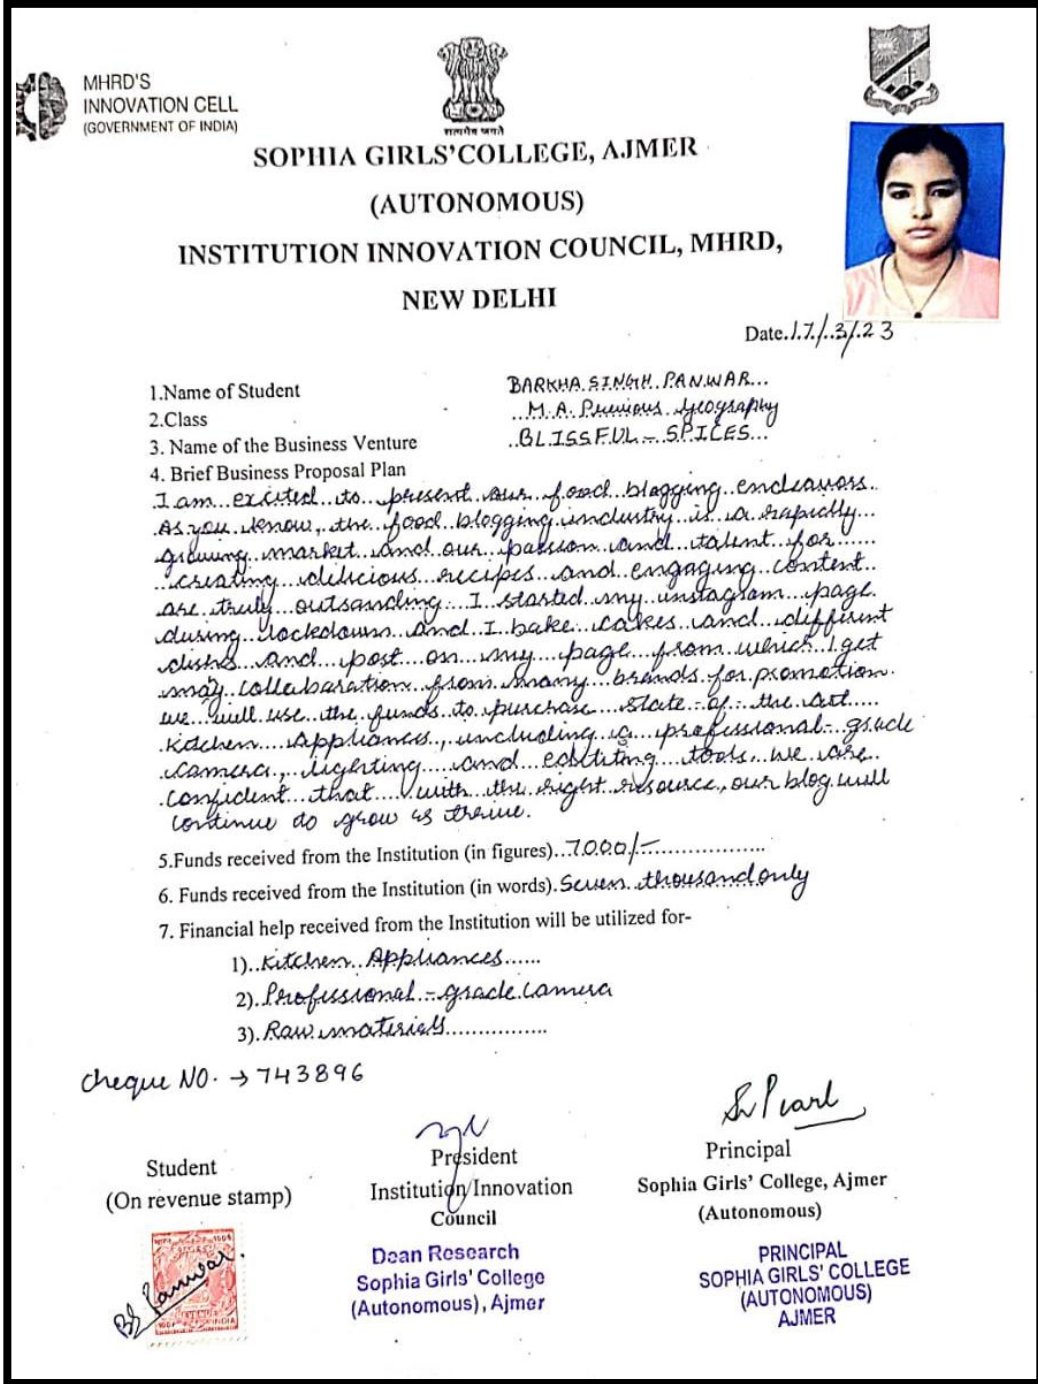 MHRD'S
INNOVATION CELL
(GOVERNMENT OF INDIA)
सत्यमेव जयते
SOPHIA GIRLS'COLLEGE, AJMER
(AUTONOMOUS)
INSTITUTION INNOVATION COUNCIL, MHRD,
NEW DELHI
Date.17/.3/.23
1.Name of Student BARKHA SINGH PANWAR...
2.Class ..M.A. Previous Geography
3. Name of the Business Venture ..BLISSFUL - SPICES...
4. Brief Business Proposal Plan
I am excited to present our food blogging endeavors.
As you know, the food blogging industry is a rapidly
growing market and our passion and talent for
creating delicious recipes and engaging content
are truly outsanding. I started my instagram page
during lockdown and I bake cakes and different
dishes and post on my page from which I get
many collabaration from many brands for promotion.
we will use the funds to purchase state-of-the art
kitchen Appliances, including a professional-grade
camera, lighting and edititing tools. we are
confident that with the right resource, our blog will
continue do grow as thrive.
5.Funds received from the Institution (in figures)...7000/-
6. Funds received from the Institution (in words). Seven thousand only
7. Financial help received from the Institution will be utilized for-
1)..Kitchen Appliances......
2). Professional-grade camera
3). Raw materials................
Cheque NO. → 743896
Sr Pearl
Student
(On revenue stamp)
President
Institution Innovation
Council
Principal
Sophia Girls' College, Ajmer
(Autonomous)
Dean Research
Sophia Girls' College
(Autonomous), Ajmer
PRINCIPAL
SOPHIA GIRLS' COLLEGE
(AUTONOMOUS)
AJMER
BS Panwar.
REVENUE
INDIA